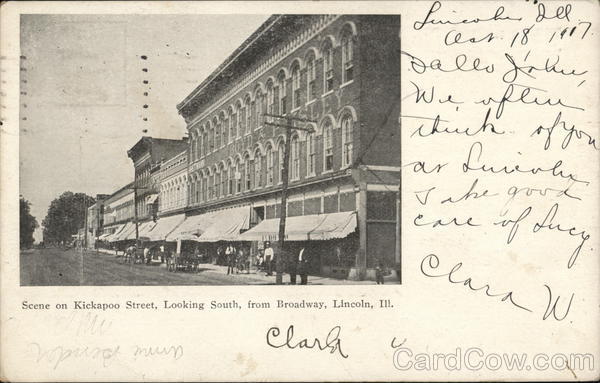 Lincoln, Ill
Oct. 18, 1917.
Hallo John,
We often
think of you
at Lincoln
Take good
care of Lucy.
Clara W.
Scene on Kickapoo Street, Looking South, from Broadway, Lincoln, Ill.
Clara
CardCow.com